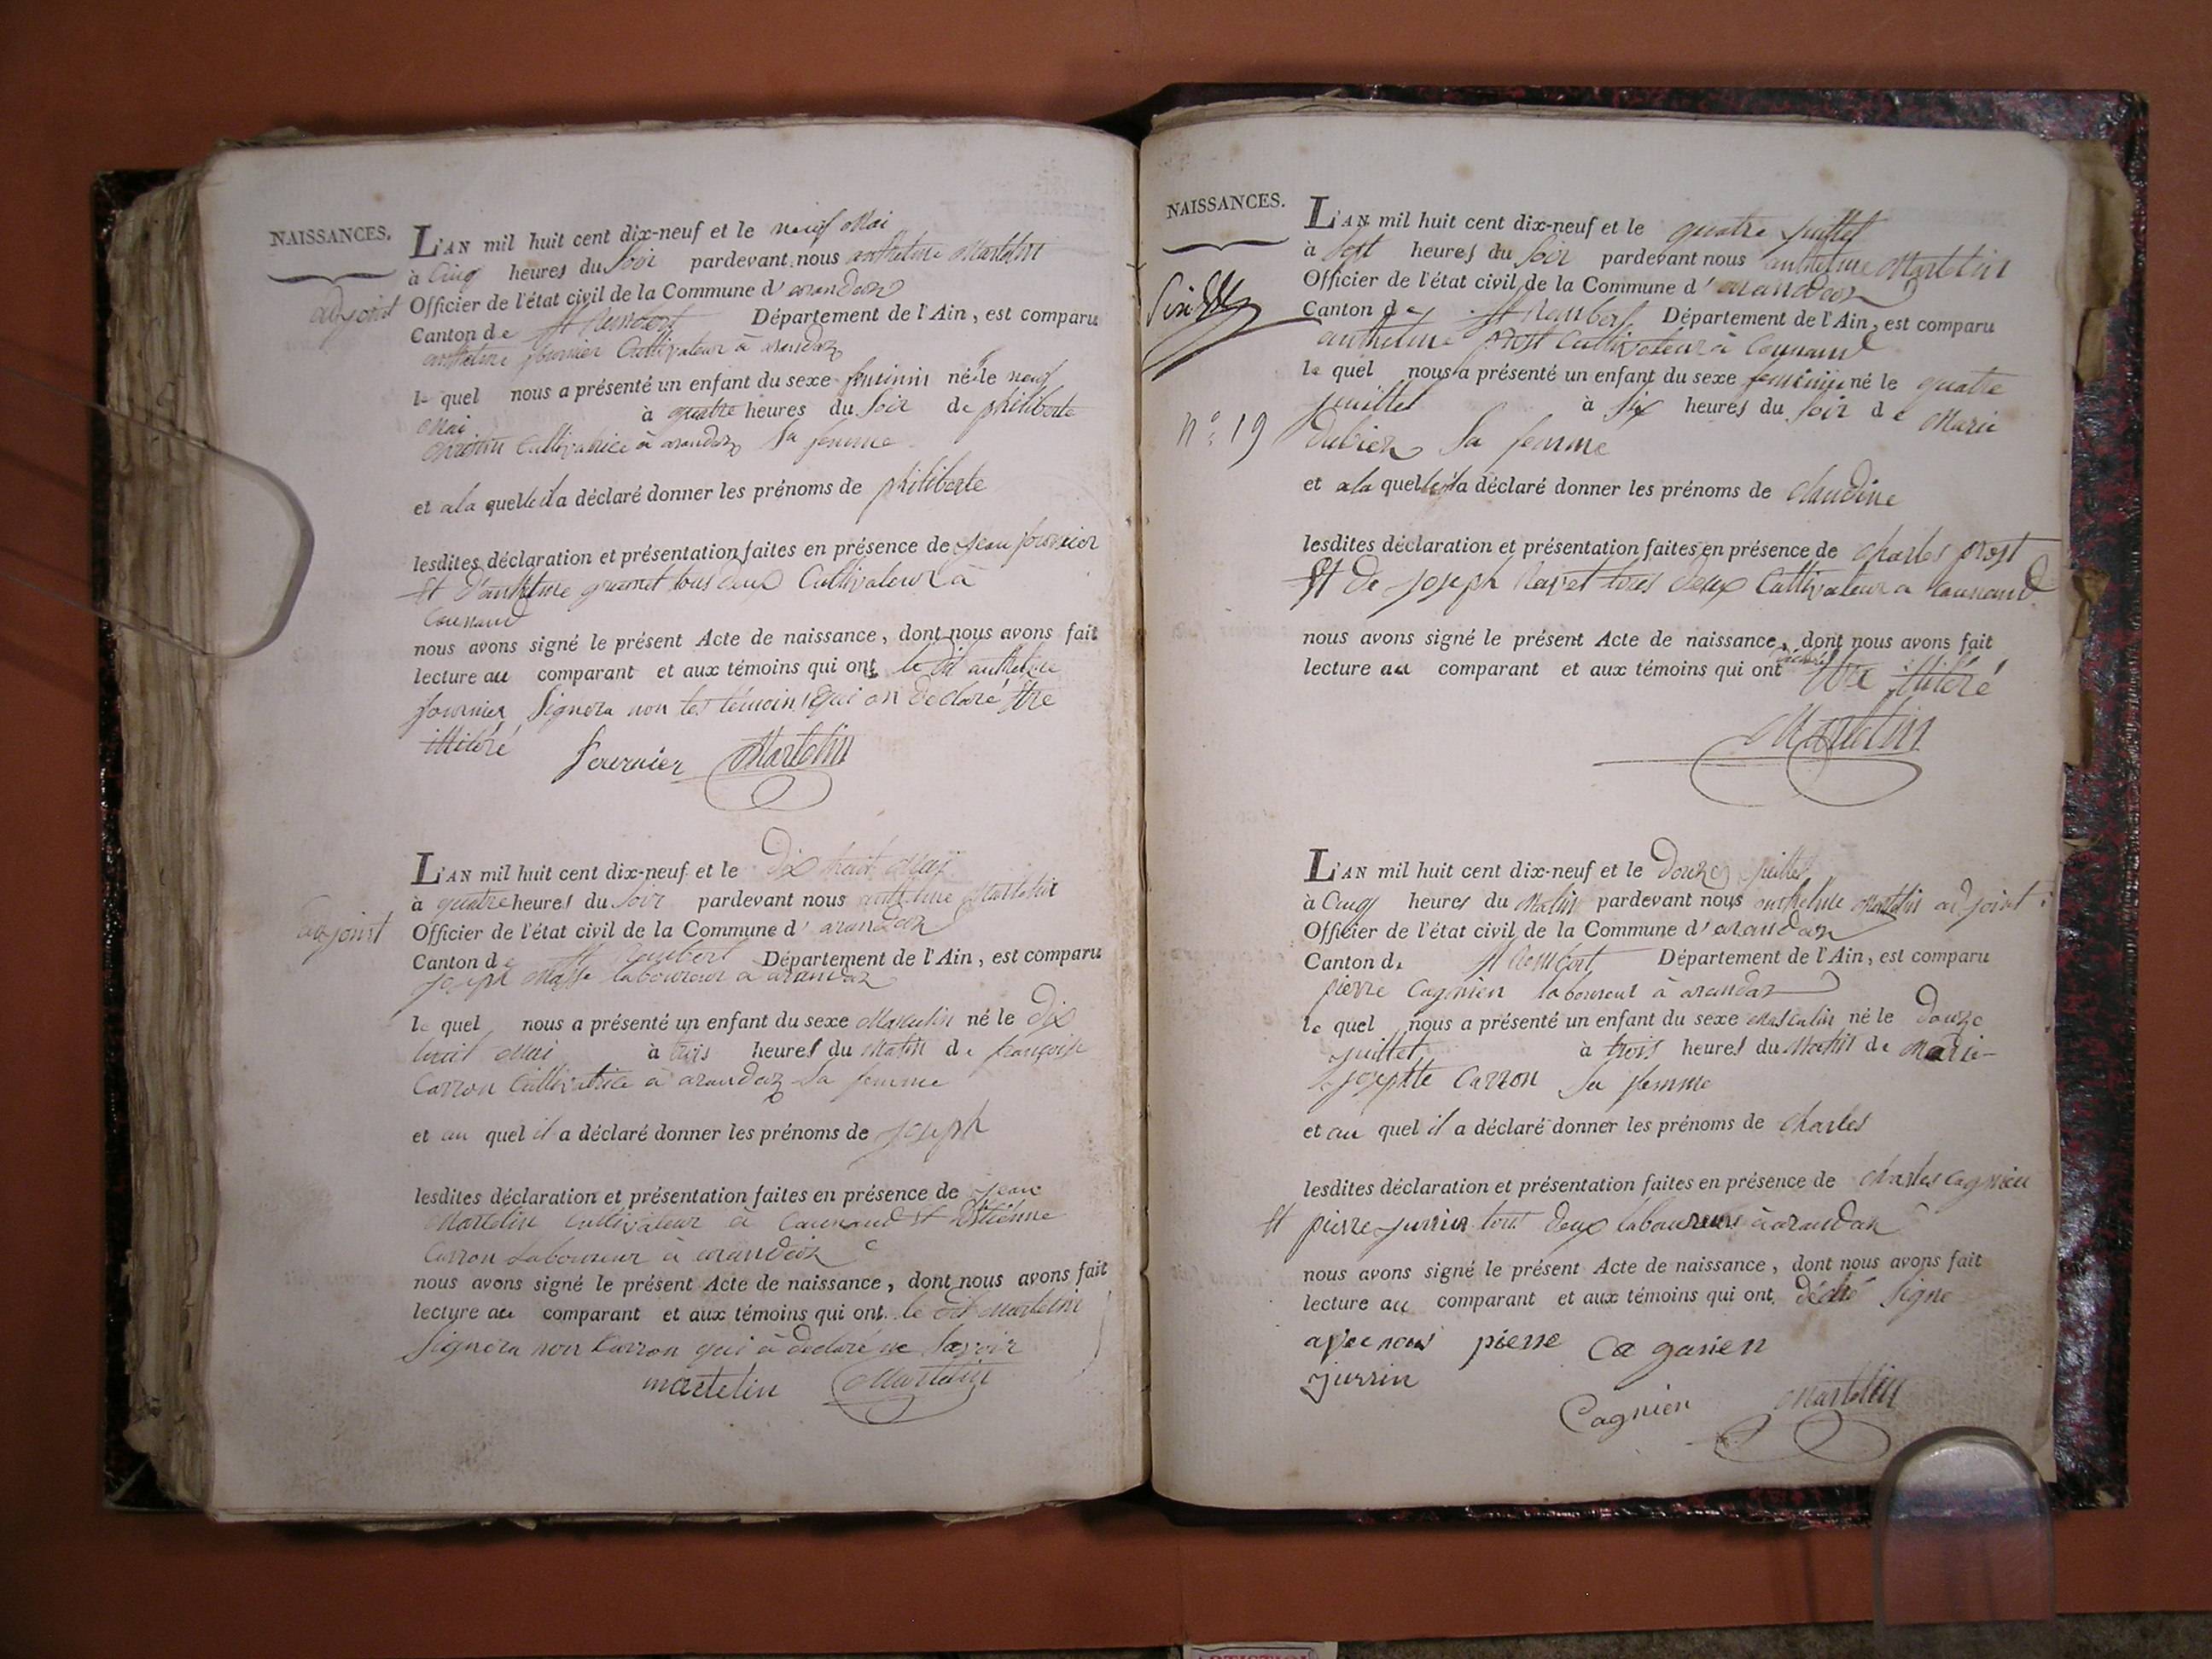 NAISSANCES.
L'AN mil huit cent dix-neuf et le neuf Mai
à Cinq heures du Soir pardevant nous anthelme Martelin
adjoint Officier de l'état civil de la Commune d' arandaz
Canton de St Rambert Département de l'Ain, est comparu
anthelme fournier Cultivateur à arandaz
le quel nous a présenté un enfant du sexe feminin né le neuf
Mai à quatre heures du Soir de philiberte
Cultivatrice à arandaz Sa femme
et a la quelle il a déclaré donner les prénoms de philiberte
lesdites déclaration et présentation faites en présence de jean fournier
Et d'anthelme gramet tous deux Cultivateur à
Counand
nous avons signé le présent Acte de naissance, dont nous avons fait
lecture au comparant et aux témoins qui ont le dit anthelme
fournier Signera non les témoins qui on declaré Etre
illitéré
fournier Martelin
L'AN mil huit cent dix-neuf et le Dix huit Mai
à quatre heures du Soir pardevant nous anthelme Martelin
adjoint Officier de l'état civil de la Commune d' arandaz
Canton de St Rambert Département de l'Ain, est comparu
joseph Masse laboureur à arandaz
le quel nous a présenté un enfant du sexe Masculin né le Dix
huit Mai à trois heures du Matin de françoise
Carron Cultivatrice à arandaz Sa femme
et au quel il a déclaré donner les prénoms de joseph
lesdites déclaration et présentation faites en présence de jean
Martelin Cultivateur à Counand Et Etienne
Carron Laboureur à arandaz
nous avons signé le présent Acte de naissance, dont nous avons fait
lecture au comparant et aux témoins qui ont le dit Martelin
Signera non Carron qui à declaré ne Savoir
martelin Martelin
NAISSANCES.
L'AN mil huit cent dix-neuf et le quatre juillet
à Sept heures du Soir pardevant nous anthelme Martelin
Officier de l'état civil de la Commune d' arandaz
Canton de St Rambert Département de l'Ain, est comparu
anthelme prost Cultivateur à Counand
le quel nous a présenté un enfant du sexe feminin né le quatre
juillet à Six heures du Soir de Marie
n° 19
Sa femme
et a la quelle il a déclaré donner les prénoms de Claudine
lesdites déclaration et présentation faites en présence de Charles prost
Et De joseph Ravet tous deux Cultivateur a Counand
nous avons signé le présent Acte de naissance, dont nous avons fait
lecture au comparant et aux témoins qui ont déclaré Etre illitéré
Martelin
L'AN mil huit cent dix-neuf et le Douze juillet
à Cinq heures du Matin pardevant nous anthelme Martelin adjoint
Officier de l'état civil de la Commune d' arandaz
Canton de St Rambert Département de l'Ain, est comparu
pierre Cagnien laboureur à arandaz
le quel nous a présenté un enfant du sexe Masculin né le Douze
juillet à trois heures du Matin de Marie-
josephte Carron Sa femme
et au quel il a déclaré donner les prénoms de Charles
lesdites déclaration et présentation faites en présence de Charles Cagnien
Et pierre jurrin tous deux laboureurs à arandaz
nous avons signé le présent Acte de naissance, dont nous avons fait
lecture au comparant et aux témoins qui ont Signé
avec nous pierre Ca gnien
jurrin
Cagnien Martelin